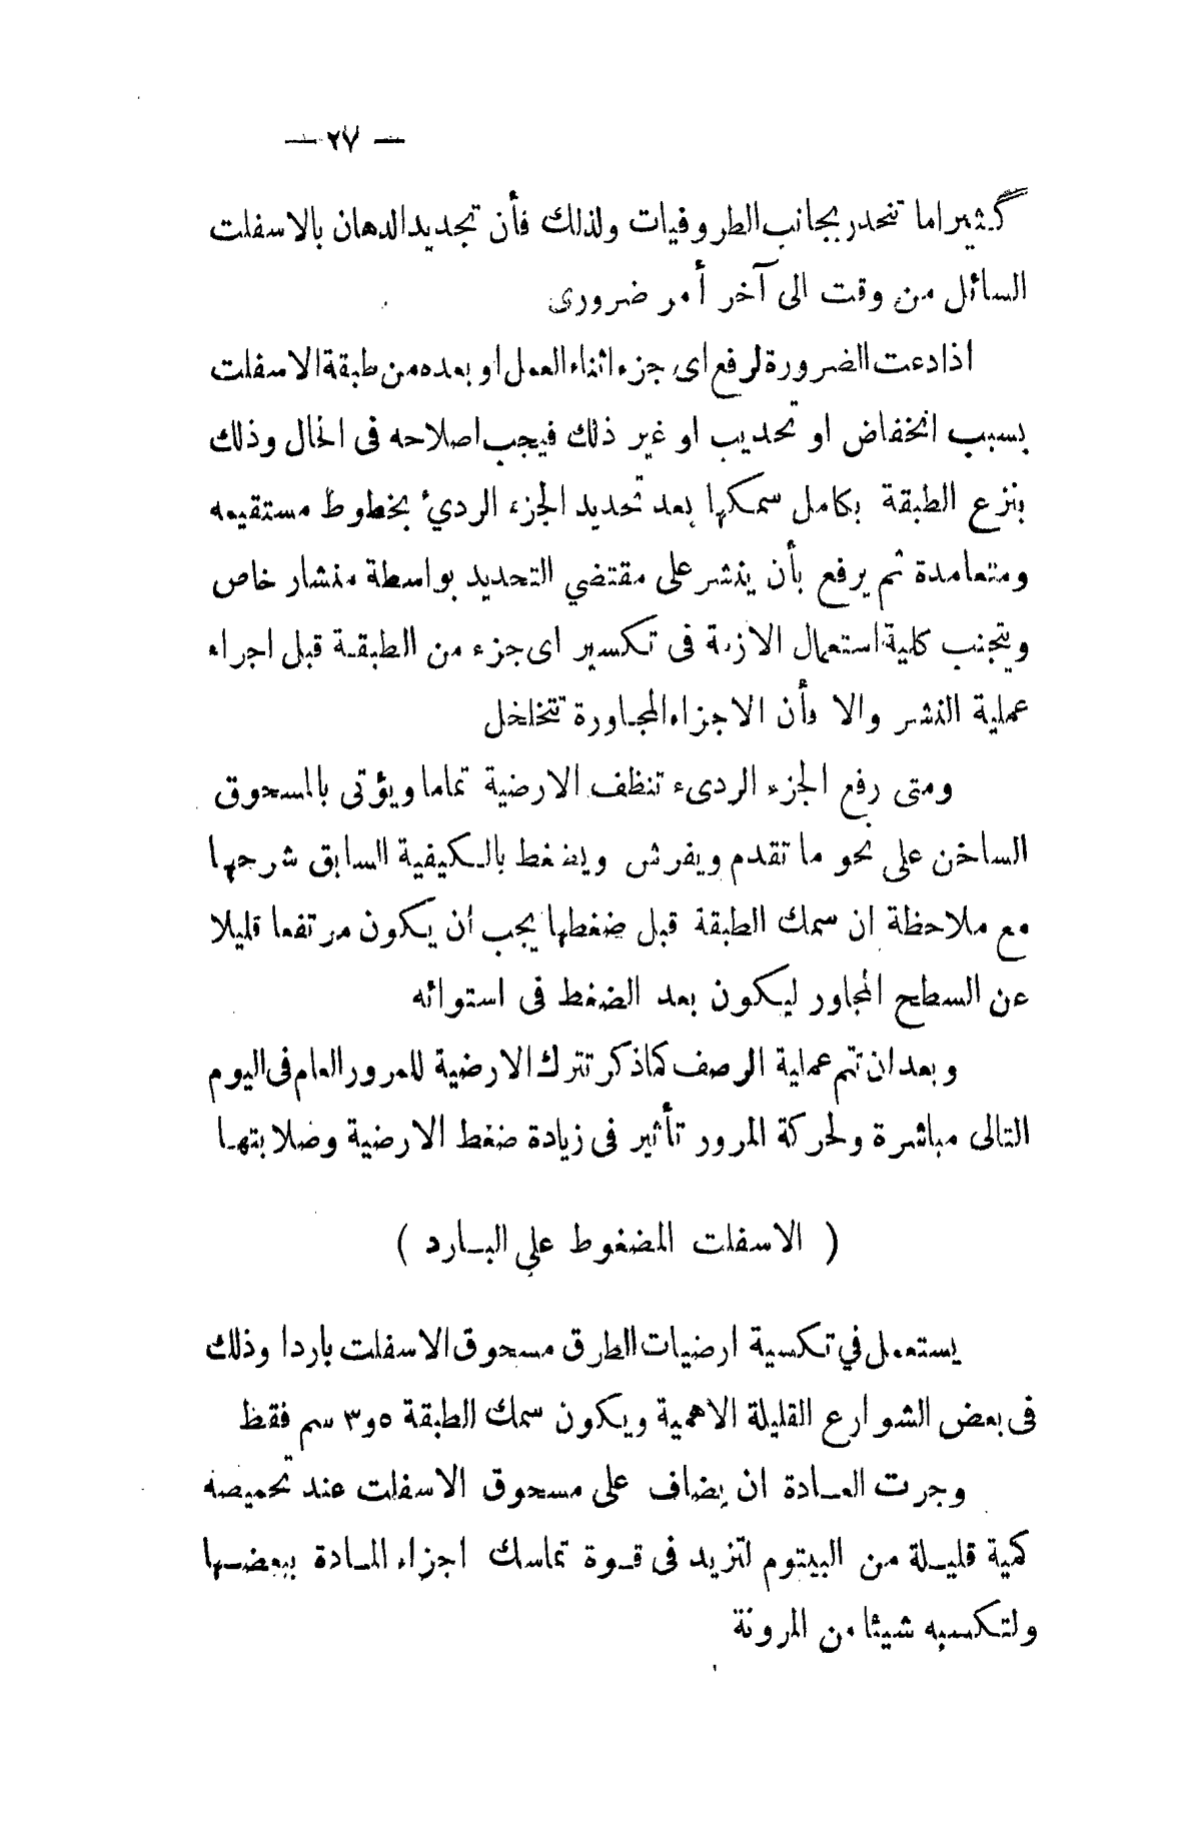 — ٢٧ —
كثيراما تنحدر بجانب الطروفيات ولذلك فأن تجديد الدهان بالاسفلت
السائل من وقت الى آخر أمر ضرورى
اذا دعت الضرورة لرفع اى جزء اثناء العمل او بعده من طبقة الاسفلت
بسبب انخفاض او تحديب او غير ذلك فيجب اصلاحه فى الحال وذلك
بنزع الطبقة بكامل سمكها بعد تحديد الجزء الردئ بخطوط مستقيمه
ومتعامدة ثم يرفع بأن ينشر على مقتضي التحديد بواسطة منشار خاص
ويتجنب كلية استعمال الازمة فى تكسير اى جزء من الطبقة قبل اجراء
عملية النشر والا فأن الاجزاء المجاورة تتخلخل
ومتى رفع الجزء الردىء تنظف الارضية تماما ويؤتى بالمسحوق
الساخن على نحو ما تقدم ويفرش ويضغط بالكيفية السابق شرحها
مع ملاحظة ان سمك الطبقة قبل ضغطها يجب ان يكون مرتفعا قليلا
عن السطح المجاور ليكون بعد الضغط فى استوائه
وبعد ان تتم عملية الرصف كما ذكر تترك الارضية للمرور العام فى اليوم
التالى مباشرة ولحركة المرور تأثير فى زيادة ضغط الارضية وصلابتها
( الاسفلت المضغوط علي البارد )
يستعمل في تكسية ارضيات الطرق مسحوق الاسفلت باردا وذلك
فى بعض الشوارع القليلة الاهمية ويكون سمك الطبقة ٥و٣ سم فقط
وجرت العادة ان يضاف على مسحوق الاسفلت عند تحميصه
كمية قليلة من البيتوم لتزيد فى قوة تماسك اجزاء المادة ببعضها
ولتكسبه شيئا من المرونة